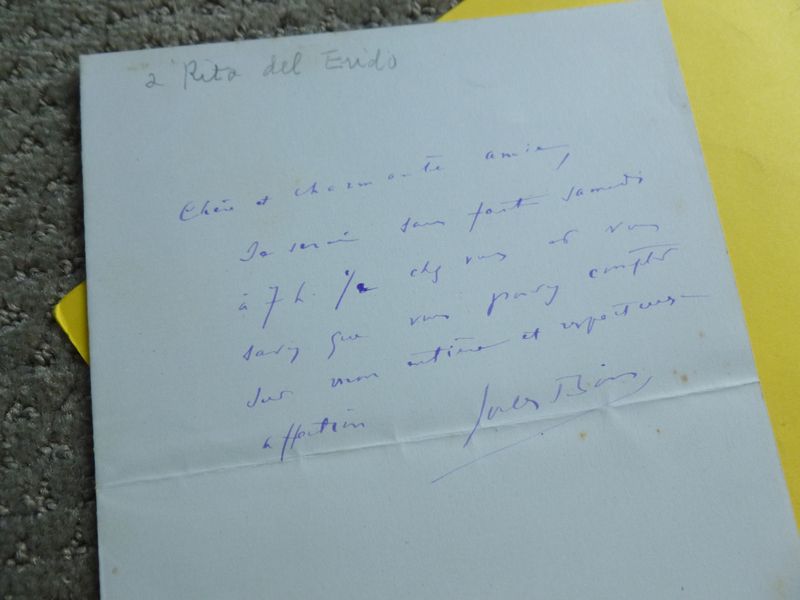 a Rita del Erido
Chère et charmante amie,
Je serai sans faute samedi
à 7 h. 1/2 chez vous et vous
savez que vous pouvez compter
sur mon entière et respectueuse
affection Jules Bois